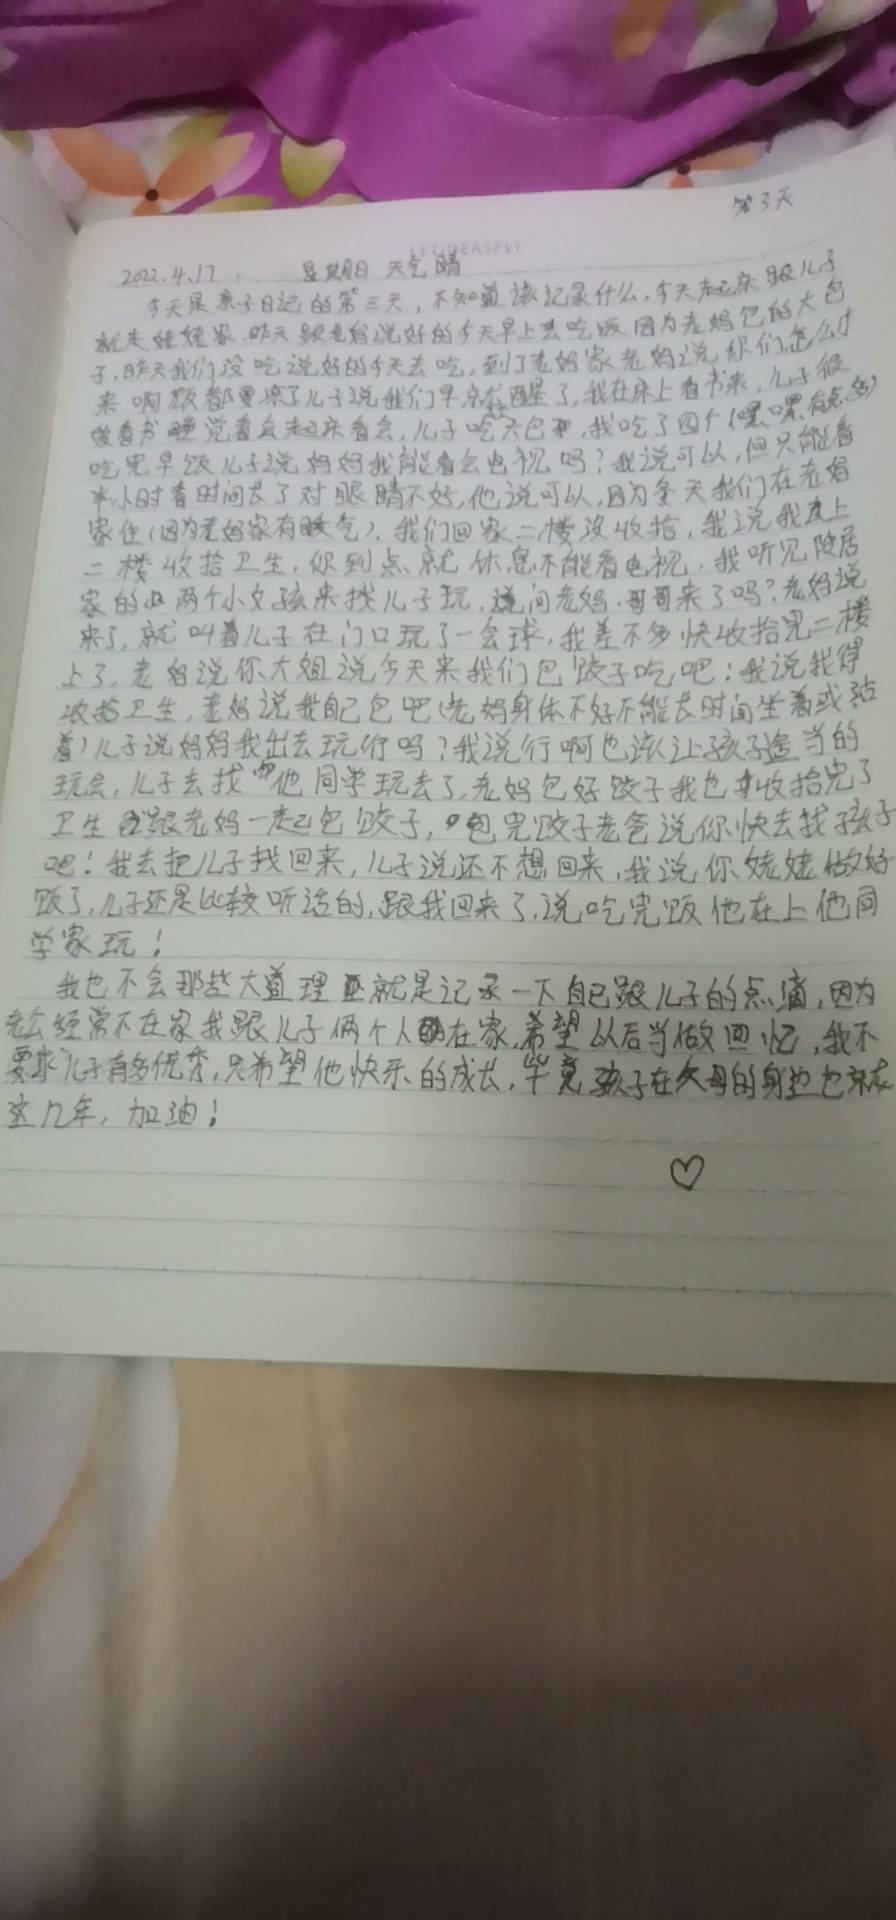 第3天
2022.4.17. 星期日 天气晴
今天是亲子日记的第三天，不知道该记录什么，今天起床跟儿子
就走姥姥家.昨天跟老妈说好的今天早上去吃饭因为老妈包的大包
子，昨天我们没吃说好的今天去吃，到了老妈家老妈说你们怎么才
来啊饭都要凉了儿子说我们早就醒了，我在床上看书来，儿子很
看书 说看会起床看会，儿子吃大包，我吃了四个(嘿嘿，有点多)
吃完早饭儿子说妈妈我能看会电视吗？我说可以，但只能看
半小时看时间长了对眼睛不好，他说可以，因为冬天我们在老妈
家住(因为老妈家有暖气)，我们回家二楼没收拾，我说我上
二楼收拾卫生，你到点就休息不能看电视，我听见隔居
家的两个小女孩来找儿子玩，说问老妈，哥哥来了吗？老妈说
来了，就叫着儿子在门口玩了一会球，我差不多快收拾完二楼
上了，老妈说你大姐说今天来我们包饺子吃吧！我说我得
收拾卫生，老妈说我自己包吧(老妈身体不好不能长时间坐着或站
着)儿子说妈妈我出去玩行吗？我说行啊也该让孩子适当的
玩会，儿子去找他同学玩去了，老妈包好饺子我也收拾完了
卫生跟老妈一起包饺子，包完饺子老爸说你快去找孩子
吧！我去把儿子找回来，儿子说还不想回来，我说你姥姥做好
饭了，儿子还是比较听话的，跟我回来了，说吃完饭他在上他同
学家玩！
我也不会那些大道理就是记录一下自己跟儿子的点滴，因为
老公经常不在家我跟儿子俩个人在家，希望以后当做回忆，我不
要求儿子有多优秀，只希望他快乐的成长，毕竟孩子在父母的身边也就
这几年，加油！